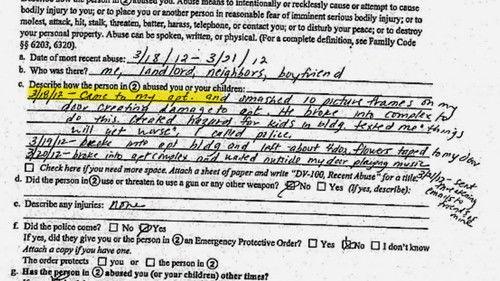 abused you. Abuse means to intentionally or recklessly cause or attempt to cause
bodily injury to you; or to place you or another person in reasonable fear of imminent serious bodily injury; or to
molest, attack, hit, stalk, threaten, batter, harass, telephone, or contact you; or to disturb your peace; or to destroy
your personal property. Abuse can be spoken, written, or physical. (For a complete definition, see Family Code
§§ 6203, 6320).
a. Date of most recent abuse: 3/18/12 - 3/21/12
b. Who was there? me, landlord, neighbors, boyfriend
c. Describe how the person in ② abused you or your children:
3/18/12 - Came to my apt. and smashed 10 picture frames on my
door creating damage to apt. He broke into complex to
do this. Created hazard for kids in bldg. texted me "things
will get worse", I called police.
3/19/12 - broke into apt bldg and left about 40 flowers taped to my door
3/20/12 - broke into apt complex and waited outside my door playing music
3/21/12 - sent threatening emails to friends of mine
Check here if you need more space. Attach a sheet of paper and write "DV-100, Recent Abuse" for a title.
d. Did the person in ② use or threaten to use a gun or any other weapon? No Yes (If yes, describe):
e. Describe any injuries: none
f. Did the police come? No Yes
If yes, did they give you or the person in ② an Emergency Protective Order? Yes No I don't know
Attach a copy if you have one.
The order protects you or the person in ②
g. Has the person in ② abused you (or your children) other times?